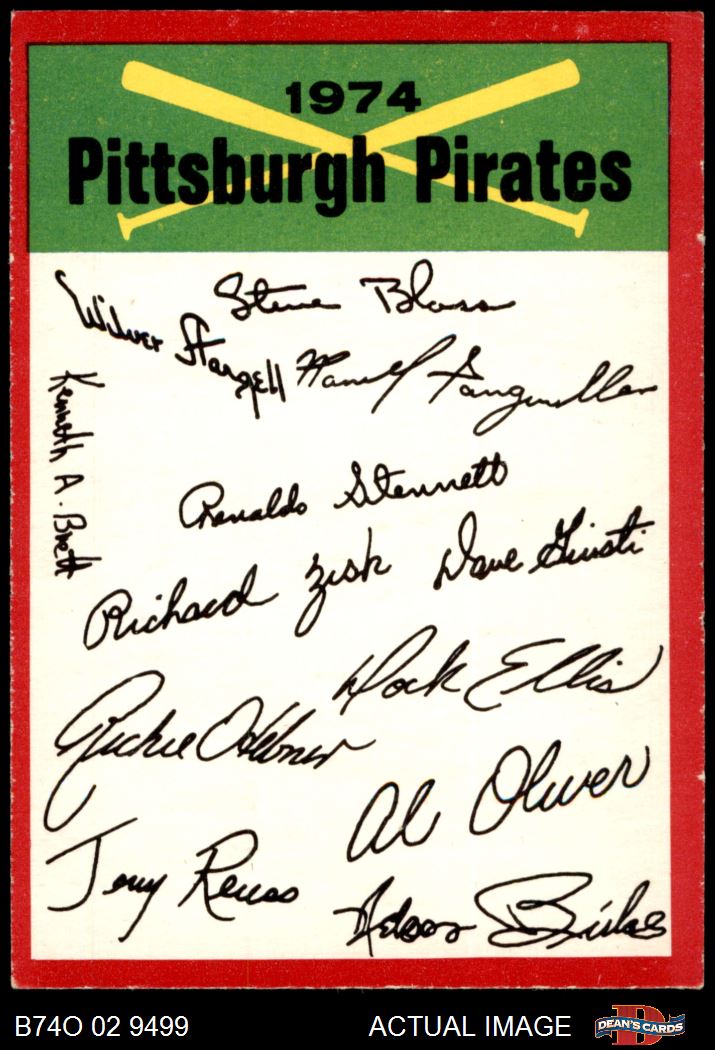 1974
Pittsburgh Pirates
Steve Blass
Wilver Stargell
Manuel Sanguillen
Kenneth A. Brett
Renaldo Stennett
Richard Zisk
Dave Giusti
Dock Ellis
Richie Hebner
Al Oliver
Jerry Reuss
Nelson Briles
B74O 02 9499
ACTUAL IMAGE
D
DEAN'S CARDS